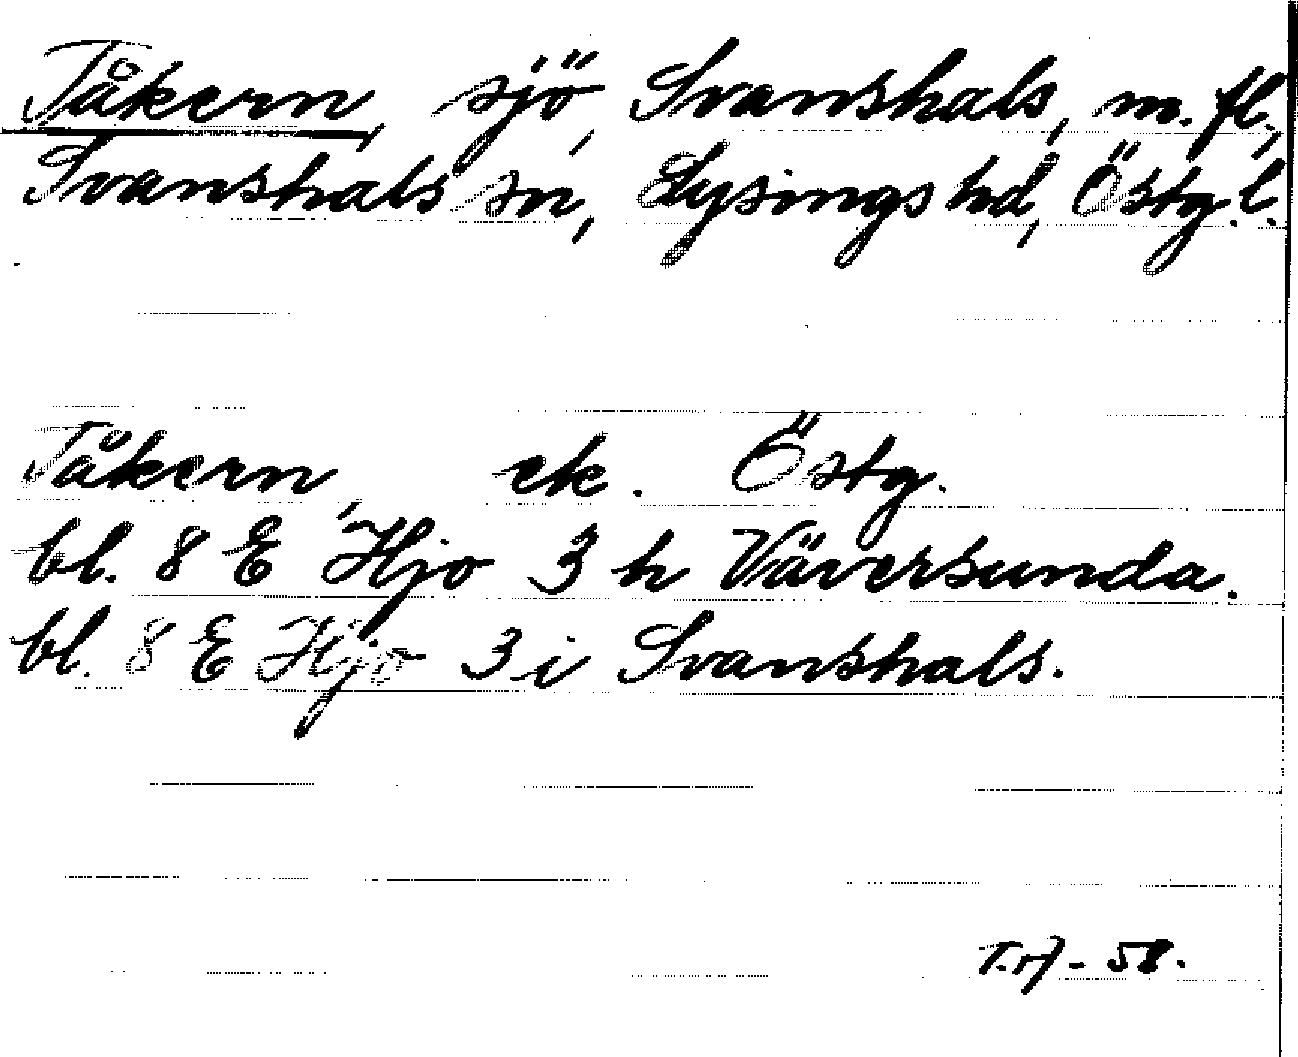 Tåkern, sjö, Svanshals, m.fl.,
Svanshals sn, Lysings hd, Östg.l.
Tåkern, ek. Östg.
bl. 8 E Hjo 3 h Väversunda.
bl. 8 E Hjo 3 i Svanshals.
58.